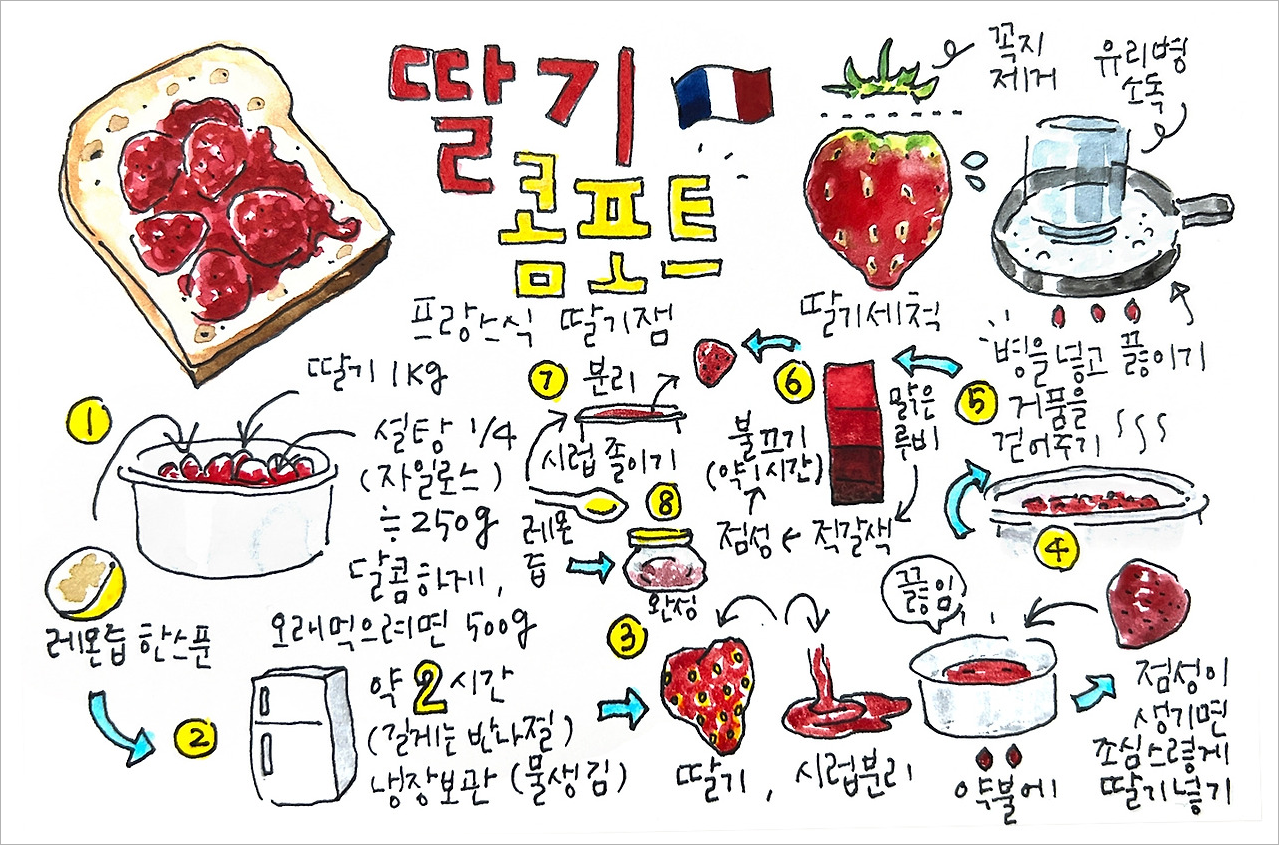 딸기
콤포트
프랑스식 딸기잼
꼭지
제거
딸기세척
유리병
소독
병을 넣고 끓이기
①
딸기 1kg
설탕 1/4
(자일로스)
≒250g
달콤하게,
오래먹으려면 500g
레몬즙 한스푼
②
약 2시간
(길게는 반나절)
냉장보관 (물생김)
③
딸기, 시럽분리
끓임
약불에
점성이
생기면
조심스럽게
딸기넣기
④
⑤
거품을
걷어주기
맑은
루비
적갈색
점성
⑥
불끄기
(약 1시간)
⑦
분리
시럽 졸이기
레몬
즙
⑧
완성